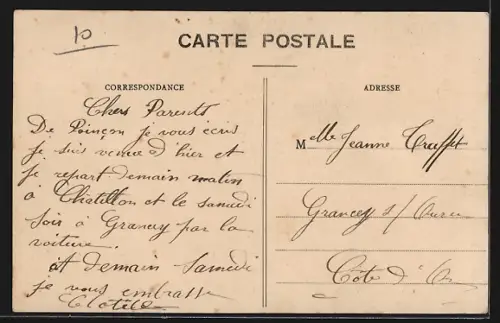 10
CARTE POSTALE
CORRESPONDANCE
Chers Parents
De Poinçon je vous écris
je suis venue d'hier et
je repart demain matin
à Chatillon et le samedi
soir à Grancey par la
voiture.
à demain Samedi
je vous embrasse
Clotilde
ADRESSE
Melle Jeanne
Grancey s/ Ource
Côte d'Or